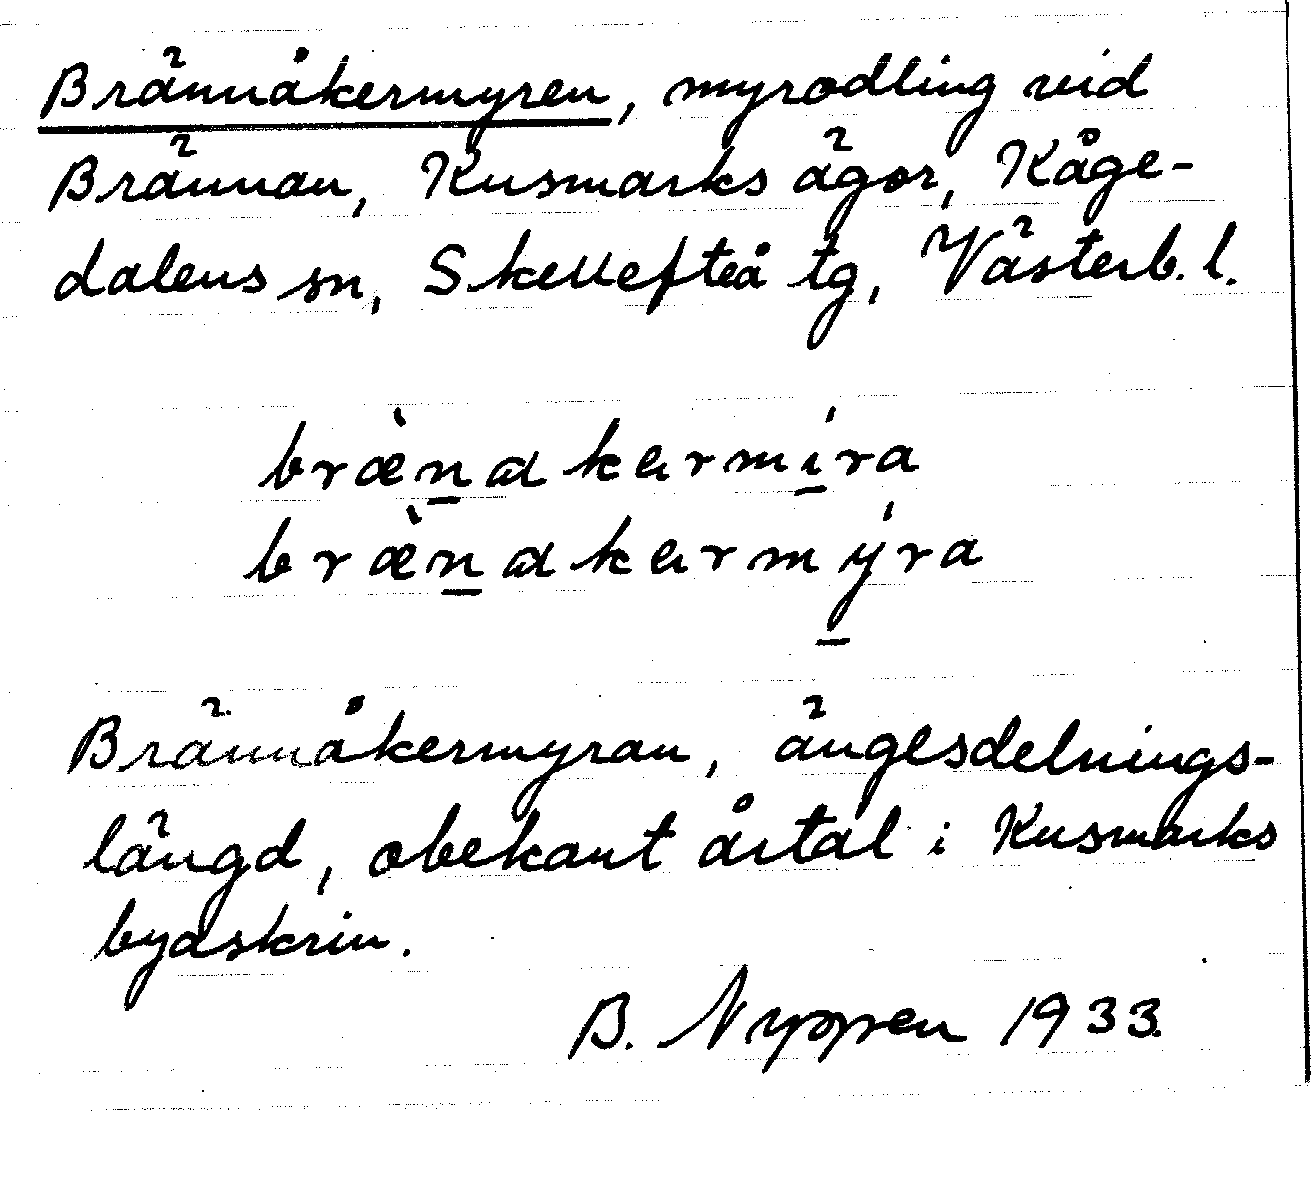 Brännåkermyren, myrodling vid
Brännan, Kusmarks ägor, Kåge-
dalens sn, Skellefteå tg, Västerb. l.
bræ̀n̲akermí̲ra
bræ̀n̲akermý̲ra
Brännåkermyran, ängesdelnings-
längd, obekant årtal i Kusmarks
byaskrin.
B. Nyppen 1933.